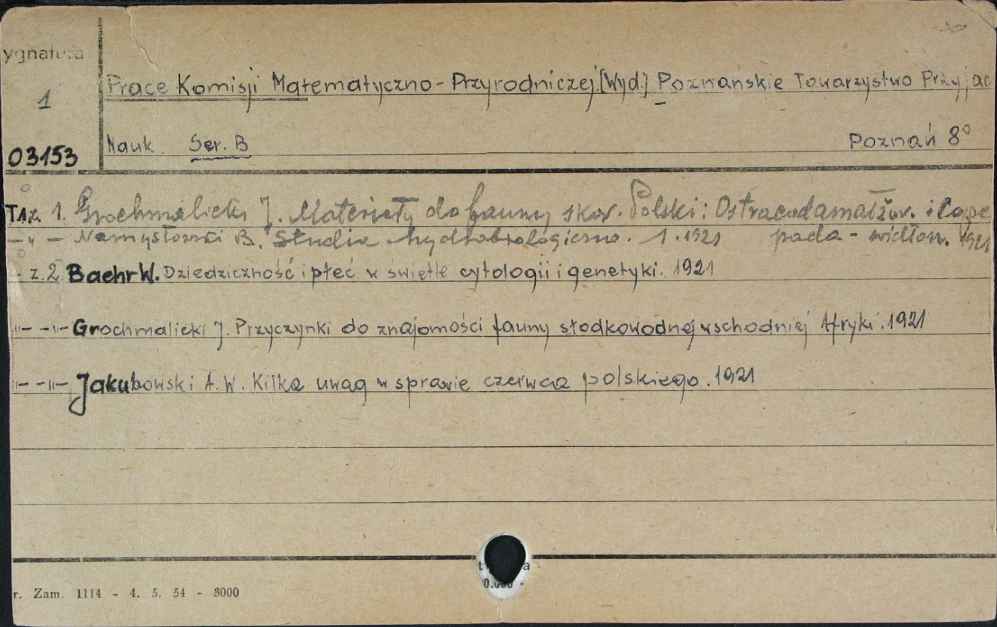 ygnatura
1
03153
Prace Komisji Matematyczno-Przyrodniczej [Wyd.] Poznańskie Towarzystwo Przyjac
Nauk Ser. B Poznań 8°
T.1 z. 1. Grochmalicki J. Materiały do fauny skor. Polski: Ostracoda małżor. i Cope
-"- Namysłowski B. Studia hydrobiologiczne. 1. 1921 poda - widłon. 1921
- z. 2 Baehr W. Dziedziczność i płeć w świetle cytologii i genetyki. 1921
"- -"- Grochmalicki J. Przyczynki do znajomości fauny słodkowodnej wschodniej Afryki. 1921
"- -"- Jakubowski A. W. Kilka uwag w sprawie czerwca polskiego. 1921
r. Zam. 1114 - 4. 5. 54 - 8000